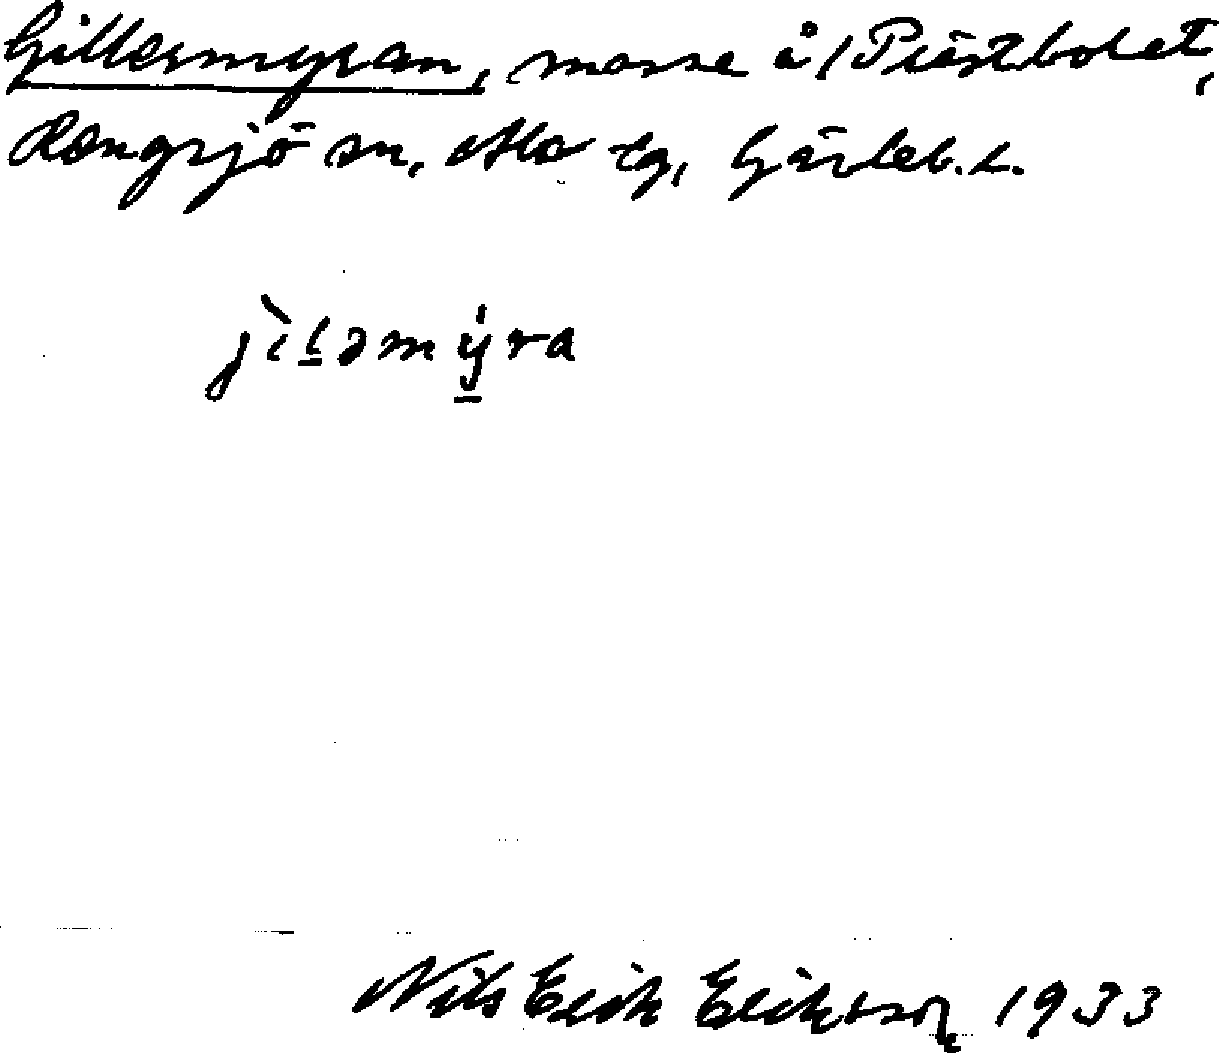 Gillermyran, mosse å /Prästbolet,
Rengsjö sn, Ala tg, Gävleb. L.
jìḷəmýra
Nils Erik Eriksson 1933